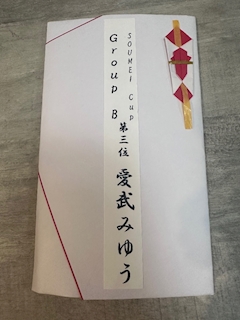 SOUMEI Cup
Group B
第三位 愛武みゆう